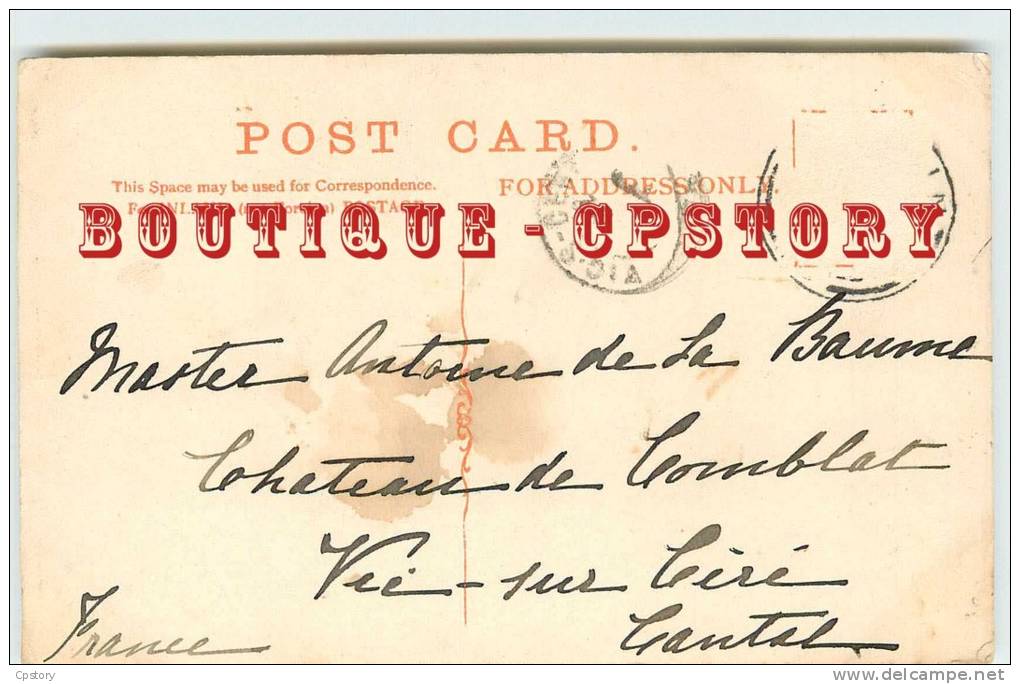 POST CARD.
This Space may be used for Correspondence.
FOR ADDRESS ONLY.
BOUTIQUE - CPSTORY
Master Antoine de La Baume
Chateau de Comblat
Vic-sur Céré
Cantal
France
Cpstory
delcampe.net